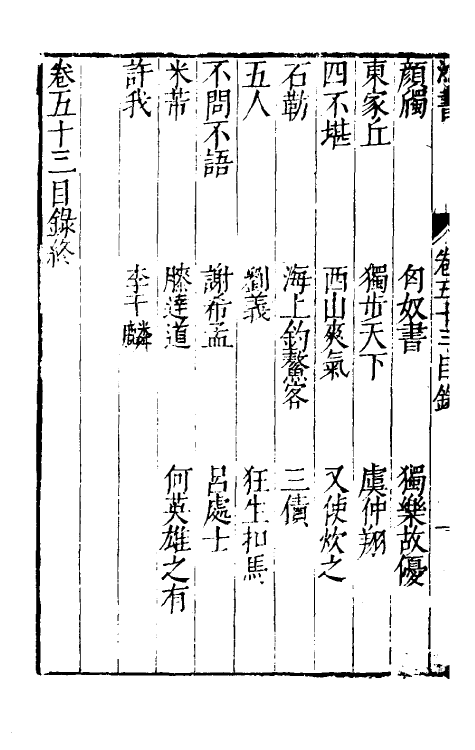 書 卷五十三目錄 一
顏斶 匈奴書 獨樂故優
東家丘 獨步天下 虞仲翔
四不堪 西山爽氣 又使炊之
石勒 海上釣鰲客 三債
五人 劉義 狂生扣馬
不問不語 謝希孟 呂處士
米芾 滕達道 何英雄之有
許我 李于麟
卷五十三目錄終